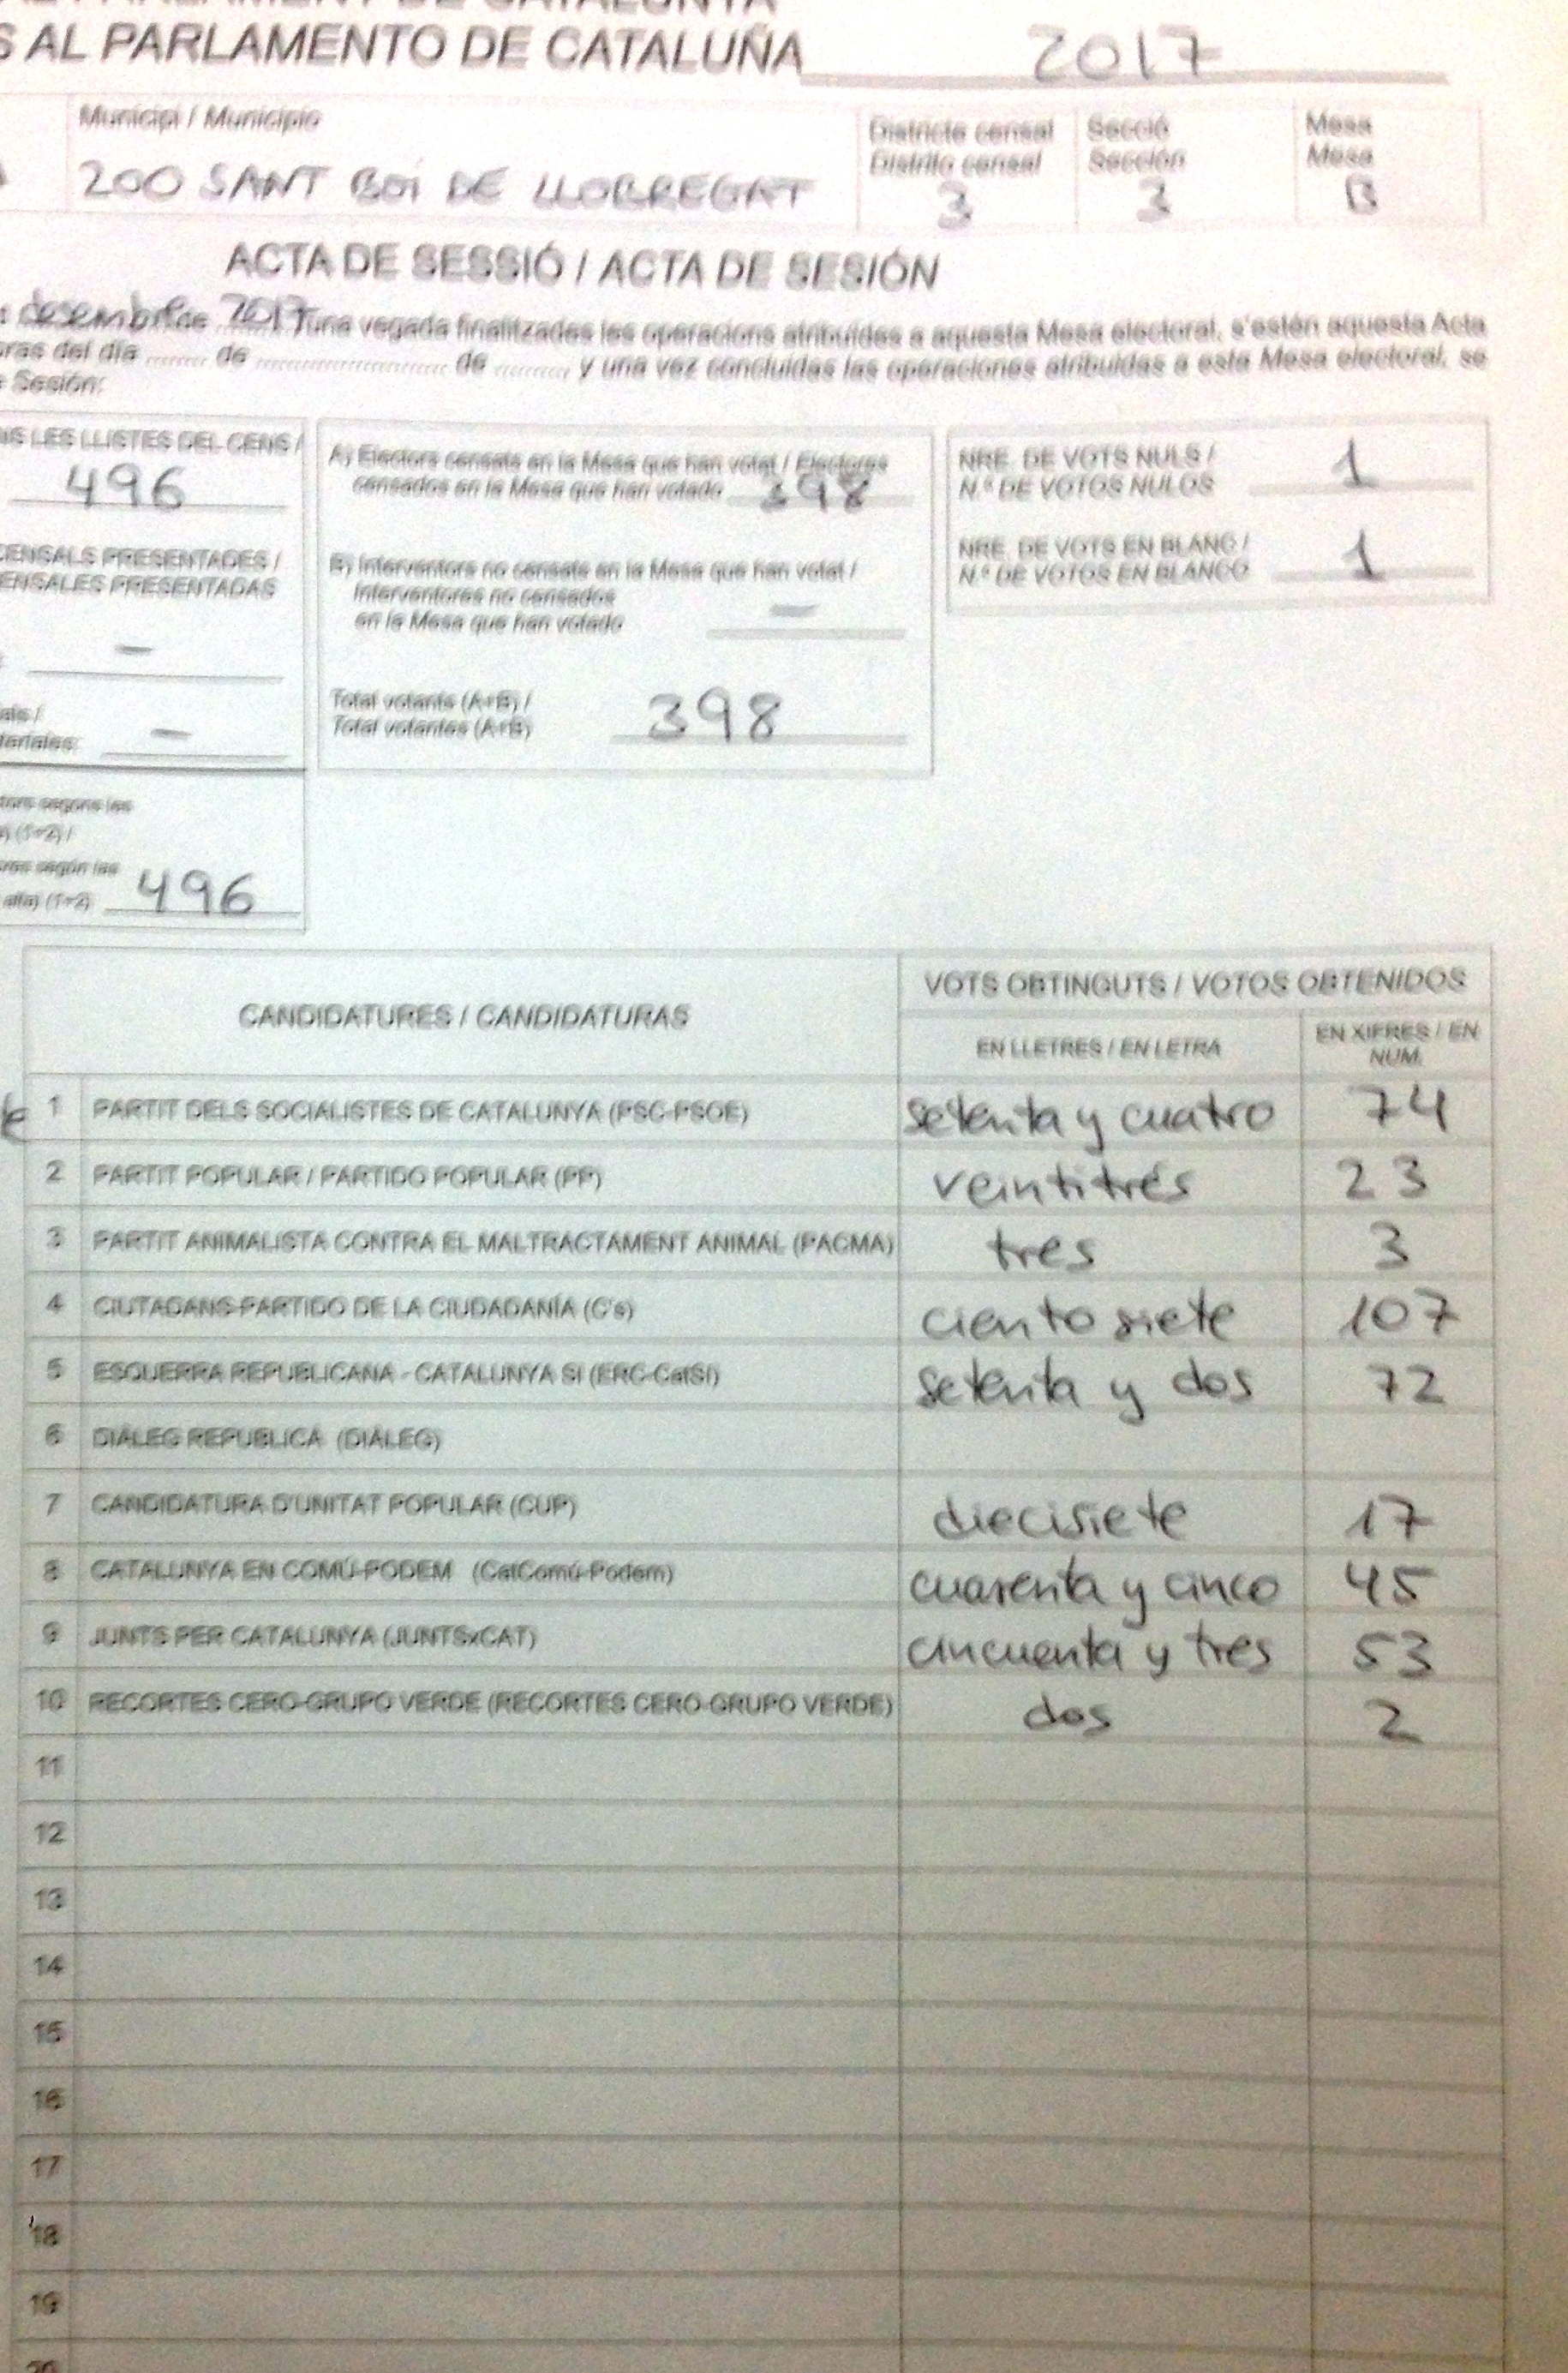 S AL PARLAMENTO DE CATALUÑA 2017
Municipi / Municipio
200 SANT BOI DE LLOBREGAT
Districte censal
Distrito censal
3
Secció
Sección
3
Mesa
Mesa
B
ACTA DE SESSIÓ / ACTA DE SESIÓN
desembre 2017
una vegada finalitzades les operacions atribuïdes a aquesta Mesa electoral, s'estén aquesta Acta
oras del día de de y una vez concluidas las operaciones atribuidas a esta Mesa electoral, se
Sesión:
LES LLISTES DEL CENS /
496
CENSALS PRESENTADES /
CENSALES PRESENTADAS
-
-
496
A) Electors censats en la Mesa que han votat / Electores
censados en la Mesa que han votado 398
B) Interventors no censats en la Mesa que han votat /
Interventores no censados
en la Mesa que han votado -
Total votants (A+B) /
Total votantes (A+B) 398
NRE. DE VOTS NULS /
N.º DE VOTOS NULOS 1
NRE. DE VOTS EN BLANC /
N.º DE VOTOS EN BLANCO 1
CANDIDATURES / CANDIDATURAS
VOTS OBTINGUTS / VOTOS OBTENIDOS
EN LLETRES / EN LETRA
EN XIFRES / EN
NUM.
1 PARTIT DELS SOCIALISTES DE CATALUNYA (PSC-PSOE) setenta y cuatro 74
2 PARTIT POPULAR / PARTIDO POPULAR (PP) veintitrés 23
3 PARTIT ANIMALISTA CONTRA EL MALTRACTAMENT ANIMAL (PACMA) tres 3
4 CIUTADANS-PARTIDO DE LA CIUDADANÍA (C's) ciento siete 107
5 ESQUERRA REPUBLICANA - CATALUNYA SÍ (ERC-CatSÍ) setenta y dos 72
6 DIÀLEG REPUBLICÀ (DIÀLEG)
7 CANDIDATURA D'UNITAT POPULAR (CUP) diecisiete 17
8 CATALUNYA EN COMÚ-PODEM (CatComú-Podem) cuarenta y cinco 45
9 JUNTS PER CATALUNYA (JUNTSxCAT) cincuenta y tres 53
10 RECORTES CERO-GRUPO VERDE (RECORTES CERO-GRUPO VERDE) dos 2
11
12
13
14
15
16
17
18
19
20